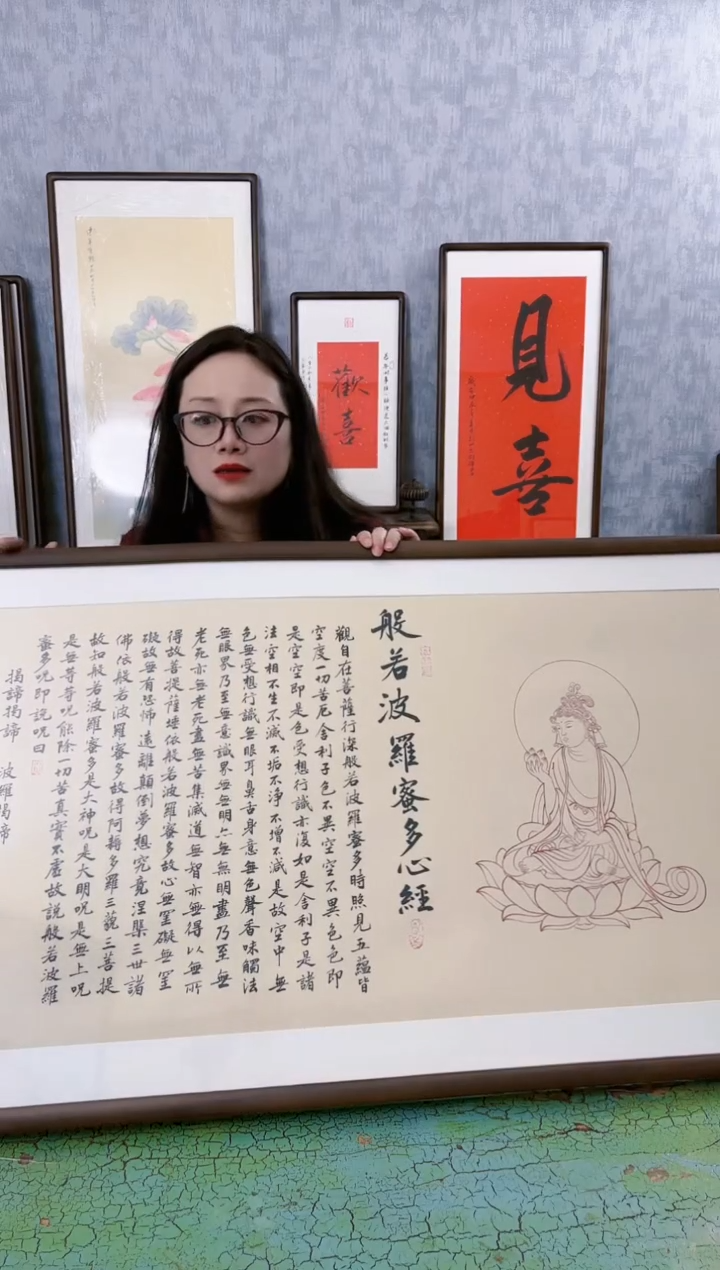 見喜
歡喜
般若波羅蜜多心經
觀自在菩薩行深般若波羅蜜多時照見五蘊皆
空度一切苦厄舍利子色不異空空不異色色即
是空空即是色受想行識亦復如是舍利子是諸
法空相不生不滅不垢不淨不增不減是故空中無
色無受想行識無眼耳鼻舌身意無色聲香味觸法
無眼界乃至無意識界無無明亦無無明盡乃至無
老死亦無老死盡無苦集滅道無智亦無得以無所
得故菩提薩埵依般若波羅蜜多故心無罣礙無罣
礙故無有恐怖遠離顛倒夢想究竟涅槃三世諸
佛依般若波羅蜜多故得阿耨多羅三藐三菩提
故知般若波羅蜜多是大神呪是大明呪是無上呪
是無等等呪能除一切苦真實不虛故說般若波羅
蜜多呪即說呪曰
揭諦揭諦 波羅揭諦